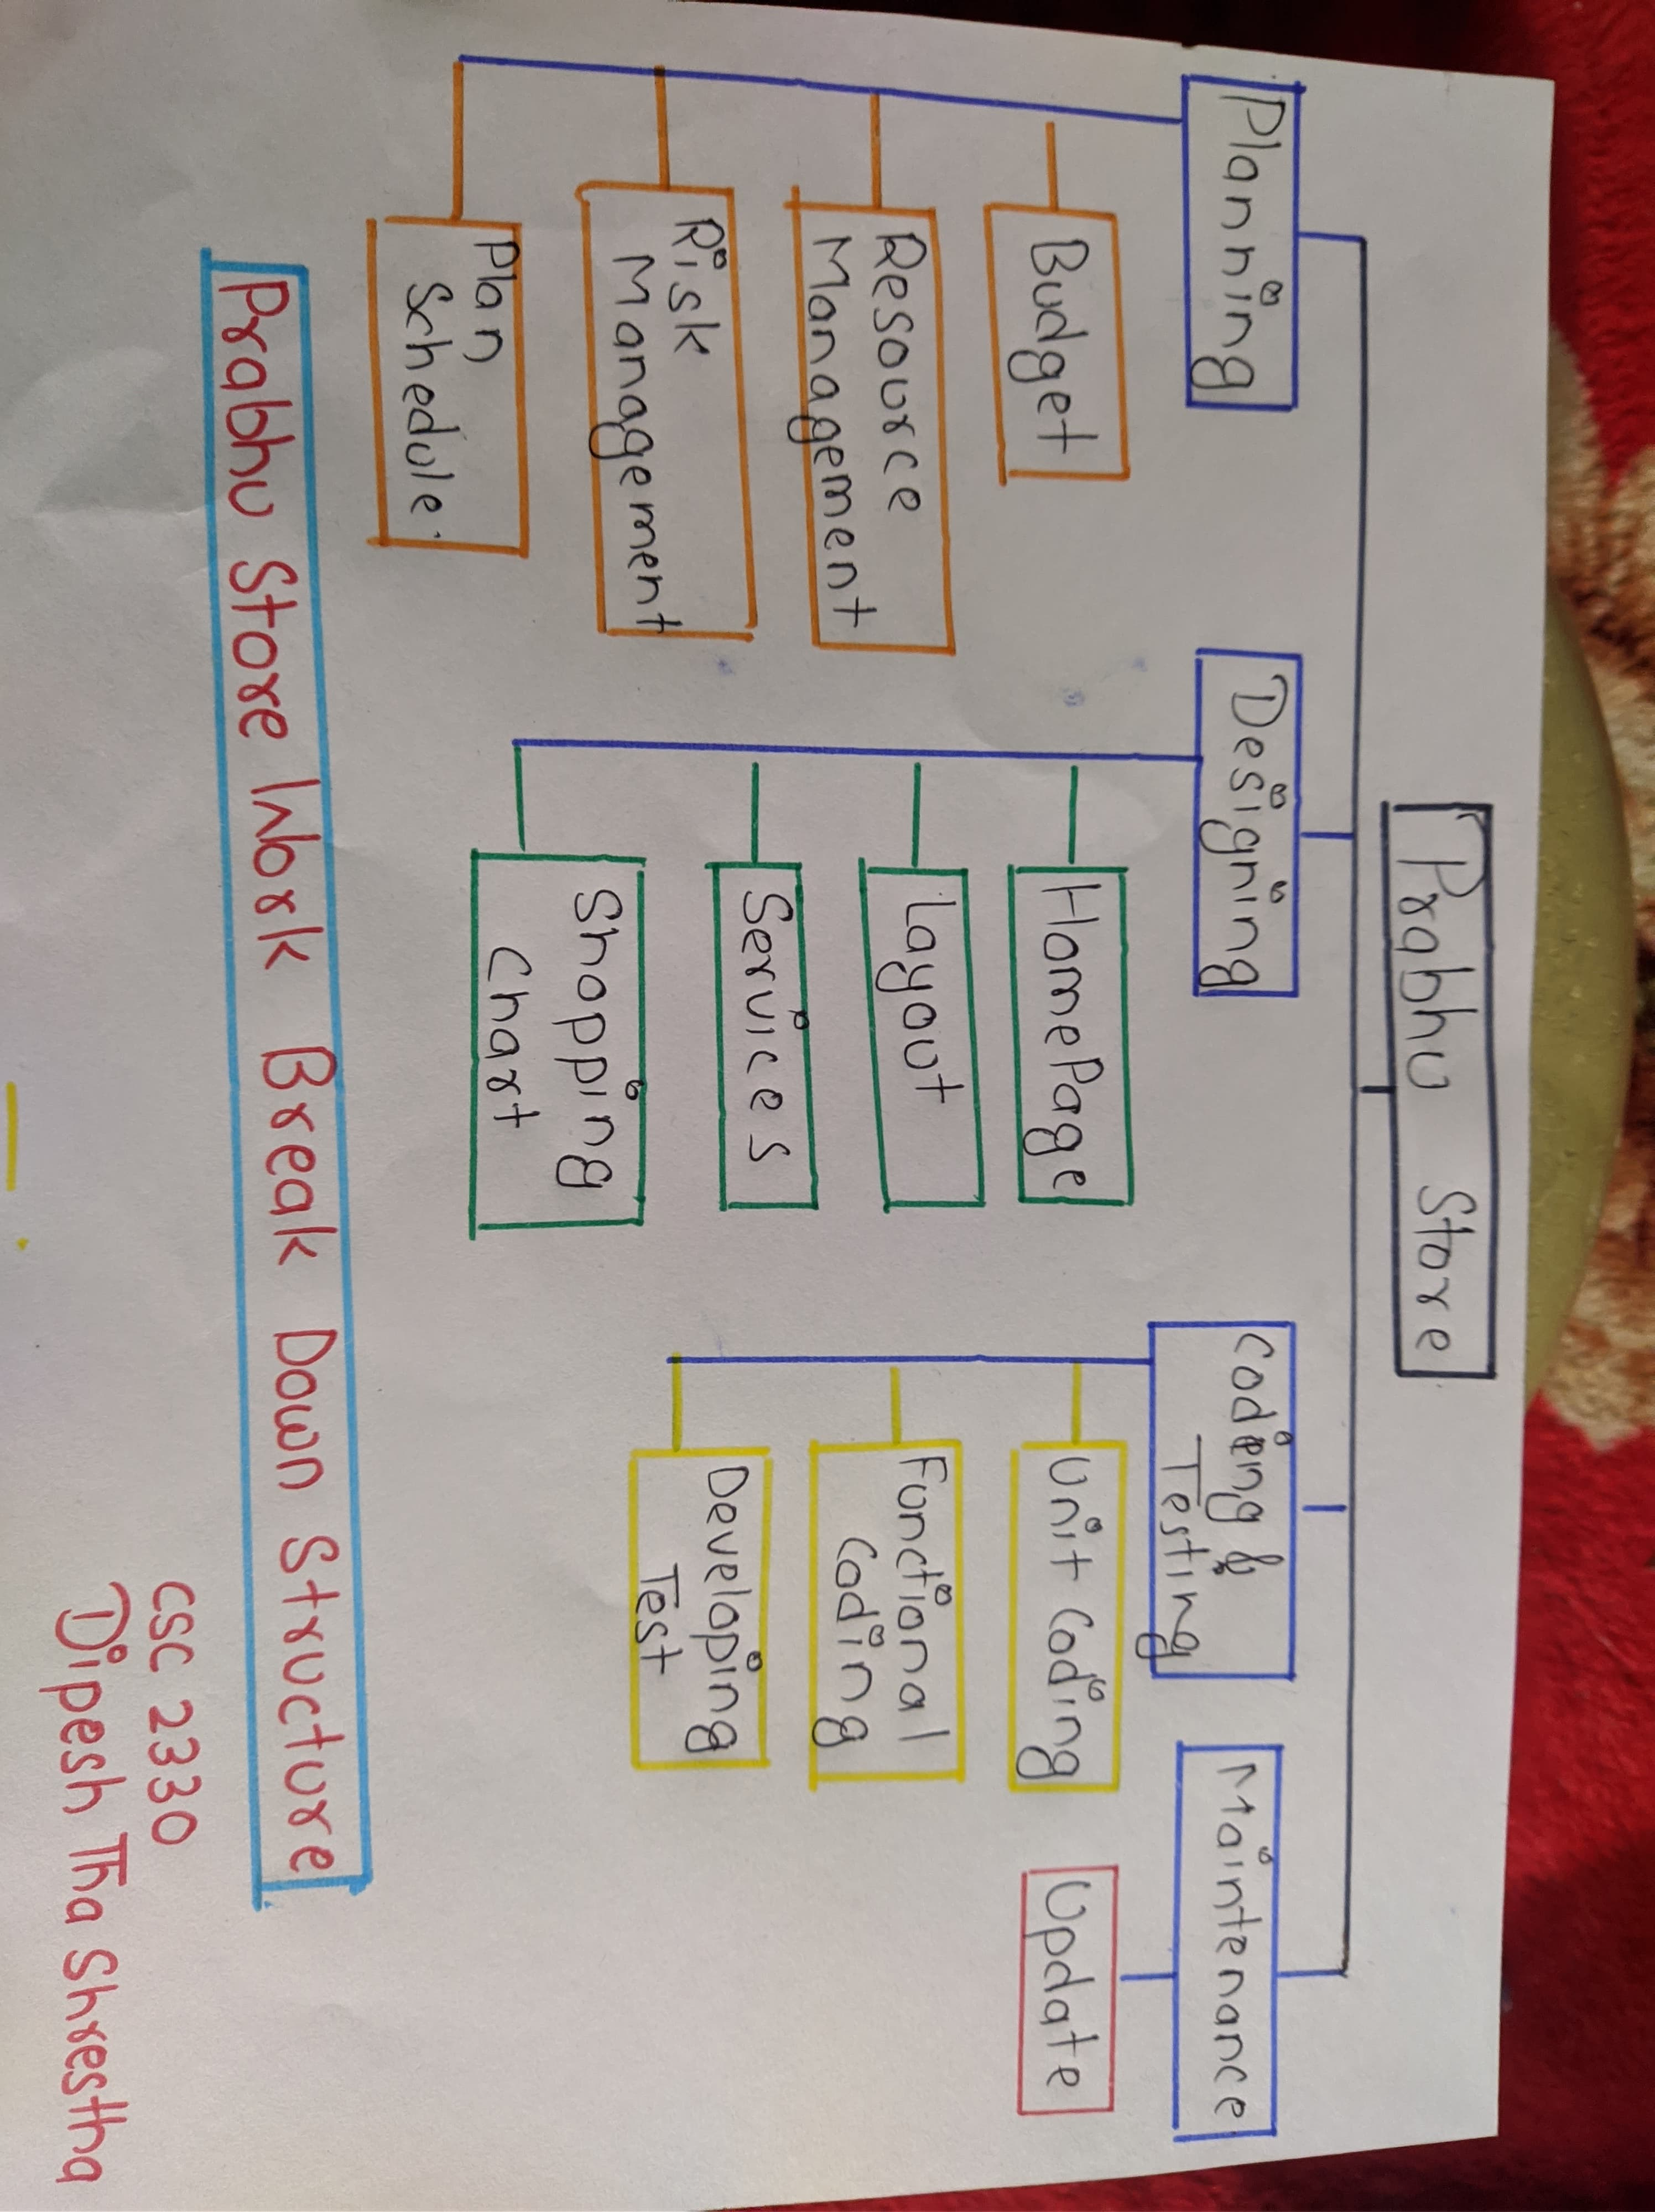 Prabhu Store
Planning
Budget
Resource
Management
Risk
Management
Plan
Schedule.
Designing
HomePage
Layout
Services
Shopping
Chart
Coding &
Testing
Unit Coding
Functional
Coding
Developing
Test
Maintenance
Update
Prabhu Store Work Break Down Structure
CSC 2330
Dipesh Tha Shrestha